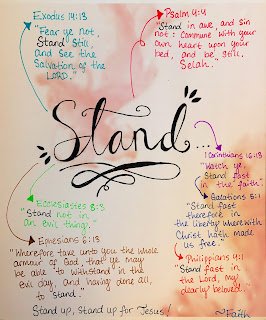 Exodus 14:13
"Fear ye not,
Stand Still,
and see the
Salvation of the
LORD."
Psalm 4:4
"Stand in awe, and sin
not: Commune with your
own heart upon your
bed, and be still,
Selah."
Stand...
1 Corinthians 16:13
"Watch ye,
Stand fast
in the faith".
Galatians 5:1
"Stand fast
therefore in
the liberty wherewith
Christ hath made
us free."
Ecclesiastes 8:3
"Stand not in
an evil thing."
Ephesians 6:13
"Wherefore take unto you the whole
armour of God, that ye may
be able to withstand in the
evil day, and having done all,
to "stand".
Philippians 4:1
"Stand fast in
the Lord, my
dearly beloved."
Stand up, stand up for Jesus!
~Faith